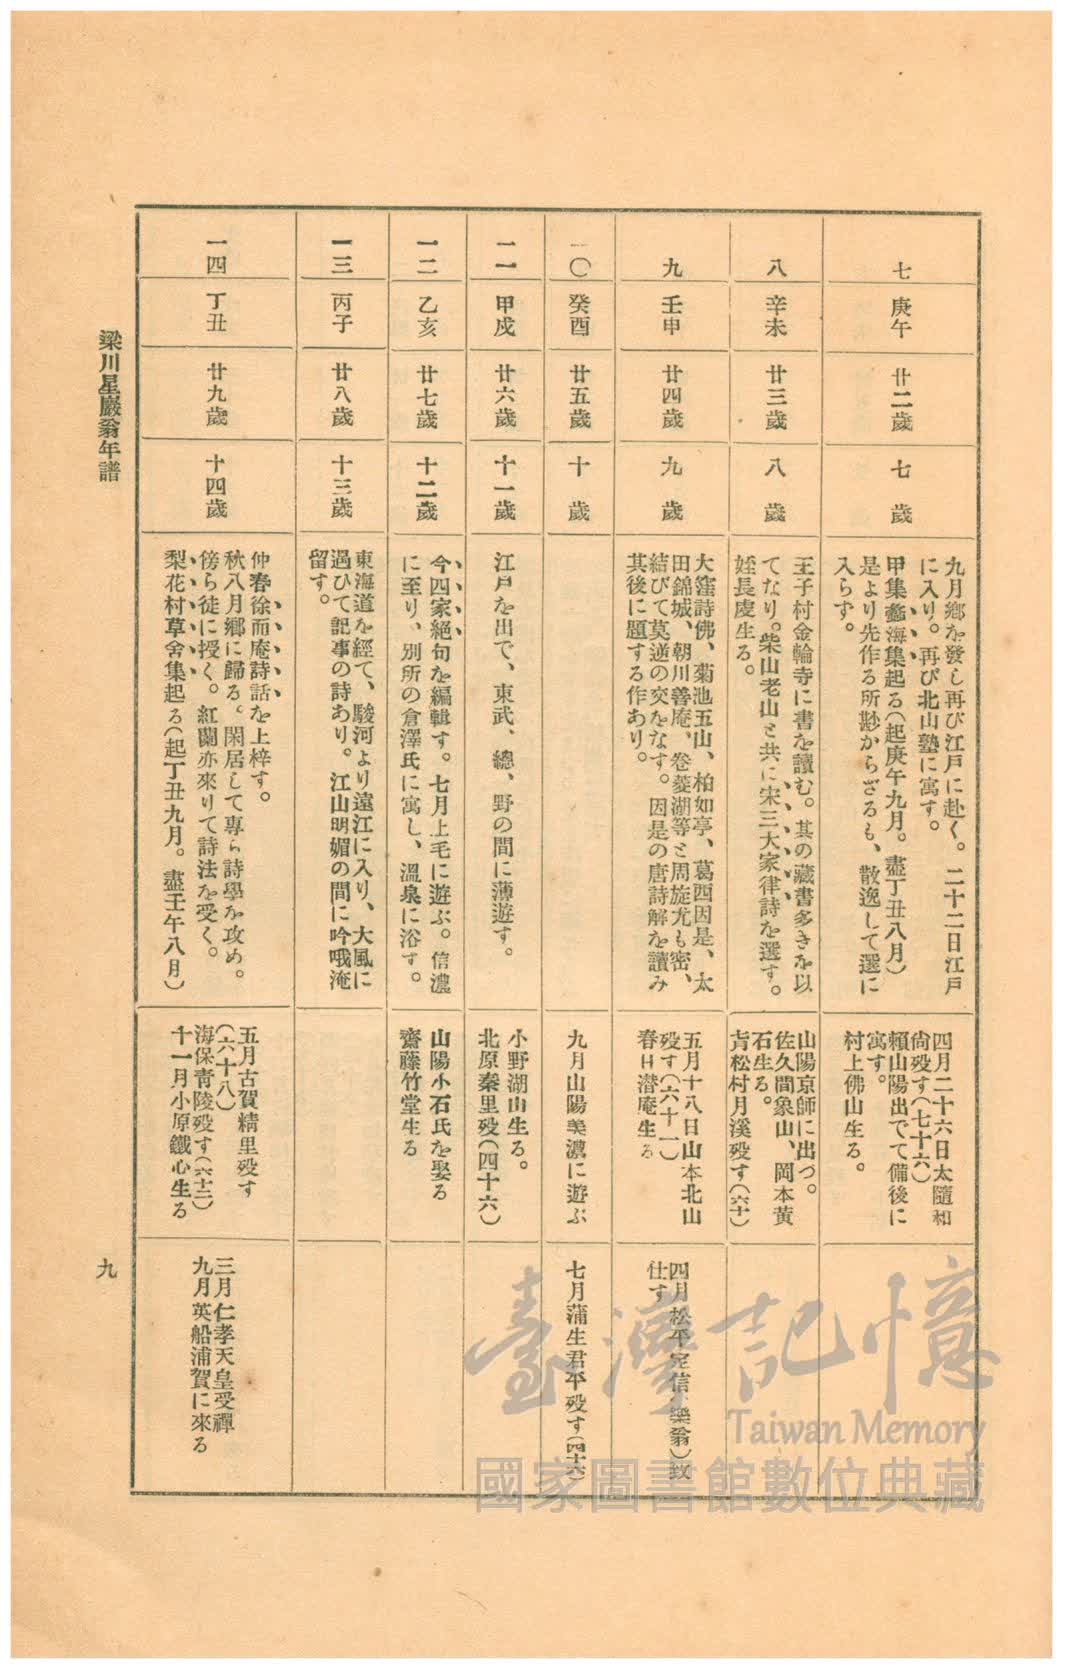 七
庚午
廿二歲
七歲
九月鄕を發し再び江戶に赴く。二十二日江戶
に入り。再び北山塾に寓す。
甲集蠡海集起る(起庚午九月。盡丁丑八月)
是より先作る所尠からざるも、散逸して選に
入らず。
四月二十六日太隨和
尙歿す(七十六)
賴山陽出でて備後に
寓す。
村上佛山生る。
八
辛未
廿三歲
八歲
王子村金輪寺に書を讀む。其の藏書多きを以
てなり。柴山老山と共に宋三大家律詩を選す。
姪長慶生る。
山陽京師に出づ。
佐久間象山、岡本黃
石生る。
靑松村月溪歿す(六十)
九
壬申
廿四歲
九歲
大窪詩佛、菊池五山、柏如亭、葛西因是、太
田錦城、朝川善庵、卷菱湖等と周旋尤も密、
結びて莫逆の交をなす。因是の唐詩解を讀み
其後に題する作あり。
五月十八日山本北山
歿す(六十一)
春日潜庵生る
四月松平定信(樂翁)致
仕す
一〇
癸酉
廿五歲
十歲
九月山陽美濃に遊ぶ
七月蒲生君平歿す(四十六)
一一
甲戌
廿六歲
十一歲
江戶を出で、東武、總、野の間に薄遊す。
小野湖山生る。
北原秦里歿(四十六)
一二
乙亥
廿七歲
十二歲
今四家絕句を編輯す。七月上毛に遊ぶ。信濃
に至り、別所の倉澤氏に寓し、溫泉に浴す。
山陽小石氏を娶る
齋藤竹堂生る
一三
丙子
廿八歲
十三歲
東海道を經て、駿河より遠江に入り、大風に
遇ひて記事の詩あり。江山明媚の間に吟哦淹
留す。
一四
丁丑
廿九歲
十四歲
仲春徐而庵詩話を上梓す。
秋八月鄕に歸る。閑居して專ら詩學を攻め。
傍ら徒に授く。紅蘭亦來りて詩法を受く。
梨花村草舍集起る(起丁丑九月。盡壬午八月)
五月古賀精里歿す
(六十八)
海保靑陵歿す(六十二)
十一月小原鐵心生る
三月仁孝天皇受禪
九月英船浦賀に來る
梁川星巖翁年譜
九
臺灣記憶
Taiwan Memory
國家圖書館數位典藏